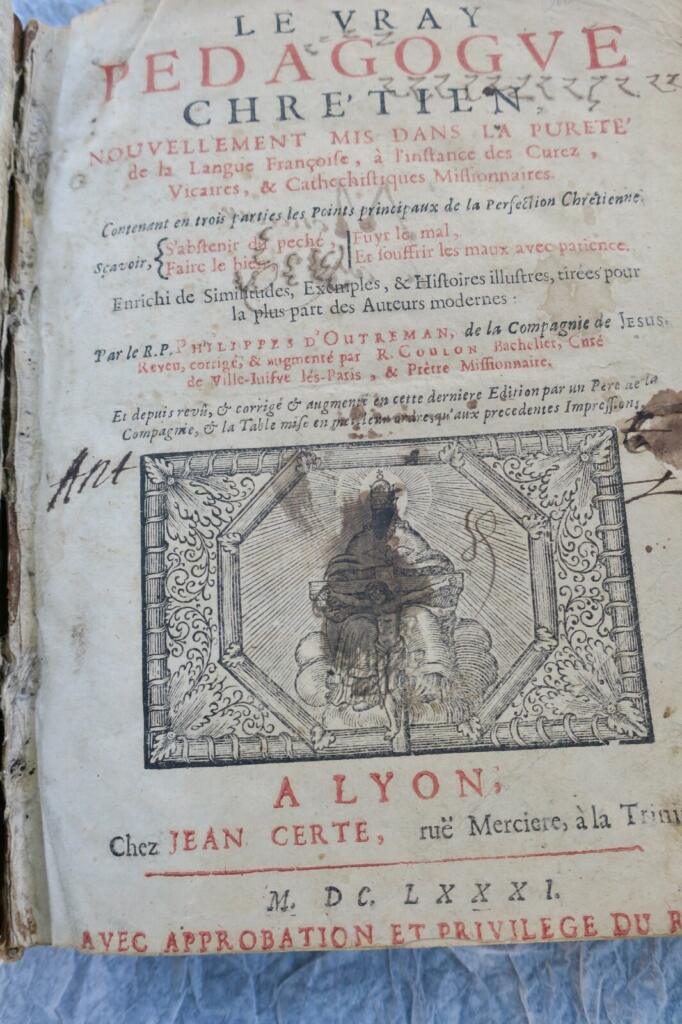 LE VRAY
PEDAGOGVE
CHRÉTIEN,
NOUVELLEMENT MIS DANS LA PURETÉ
de la Langue Françoise, à l'instance des Curez,
Vicaires, & Cathechistiques Missionnaires.
Contenant en trois parties les Points principaux de la Perfection Chrétienne.
Sçavoir, {S'abstenir du peché, | Fuyr le mal,
{Faire le bien, | Et souffrir les maux avec patience.
Enrichi de Similitudes, Exemples, & Histoires illustres, tirées pour
la plus part des Auteurs modernes :
Par le R.P. PHILIPPES D'OUTREMAN, de la Compagnie de JESUS.
Reveu, corrigé, & augmenté par R. COULON Bachelier, Curé
de Ville-Iuifve lés-Paris, & Prêtre Missionnaire.
Et depuis revû, & corrigé & augmenté en cette derniere Edition par un Pere de la
Compagnie, & la Table mise en meilleur ordre qu'aux precedentes Impressions.
Ant
A LYON,
Chez JEAN CERTE, ruë Merciere, à la Trini
M. DC. LXXXI.
AVEC APPROBATION ET PRIVILEGE DU R